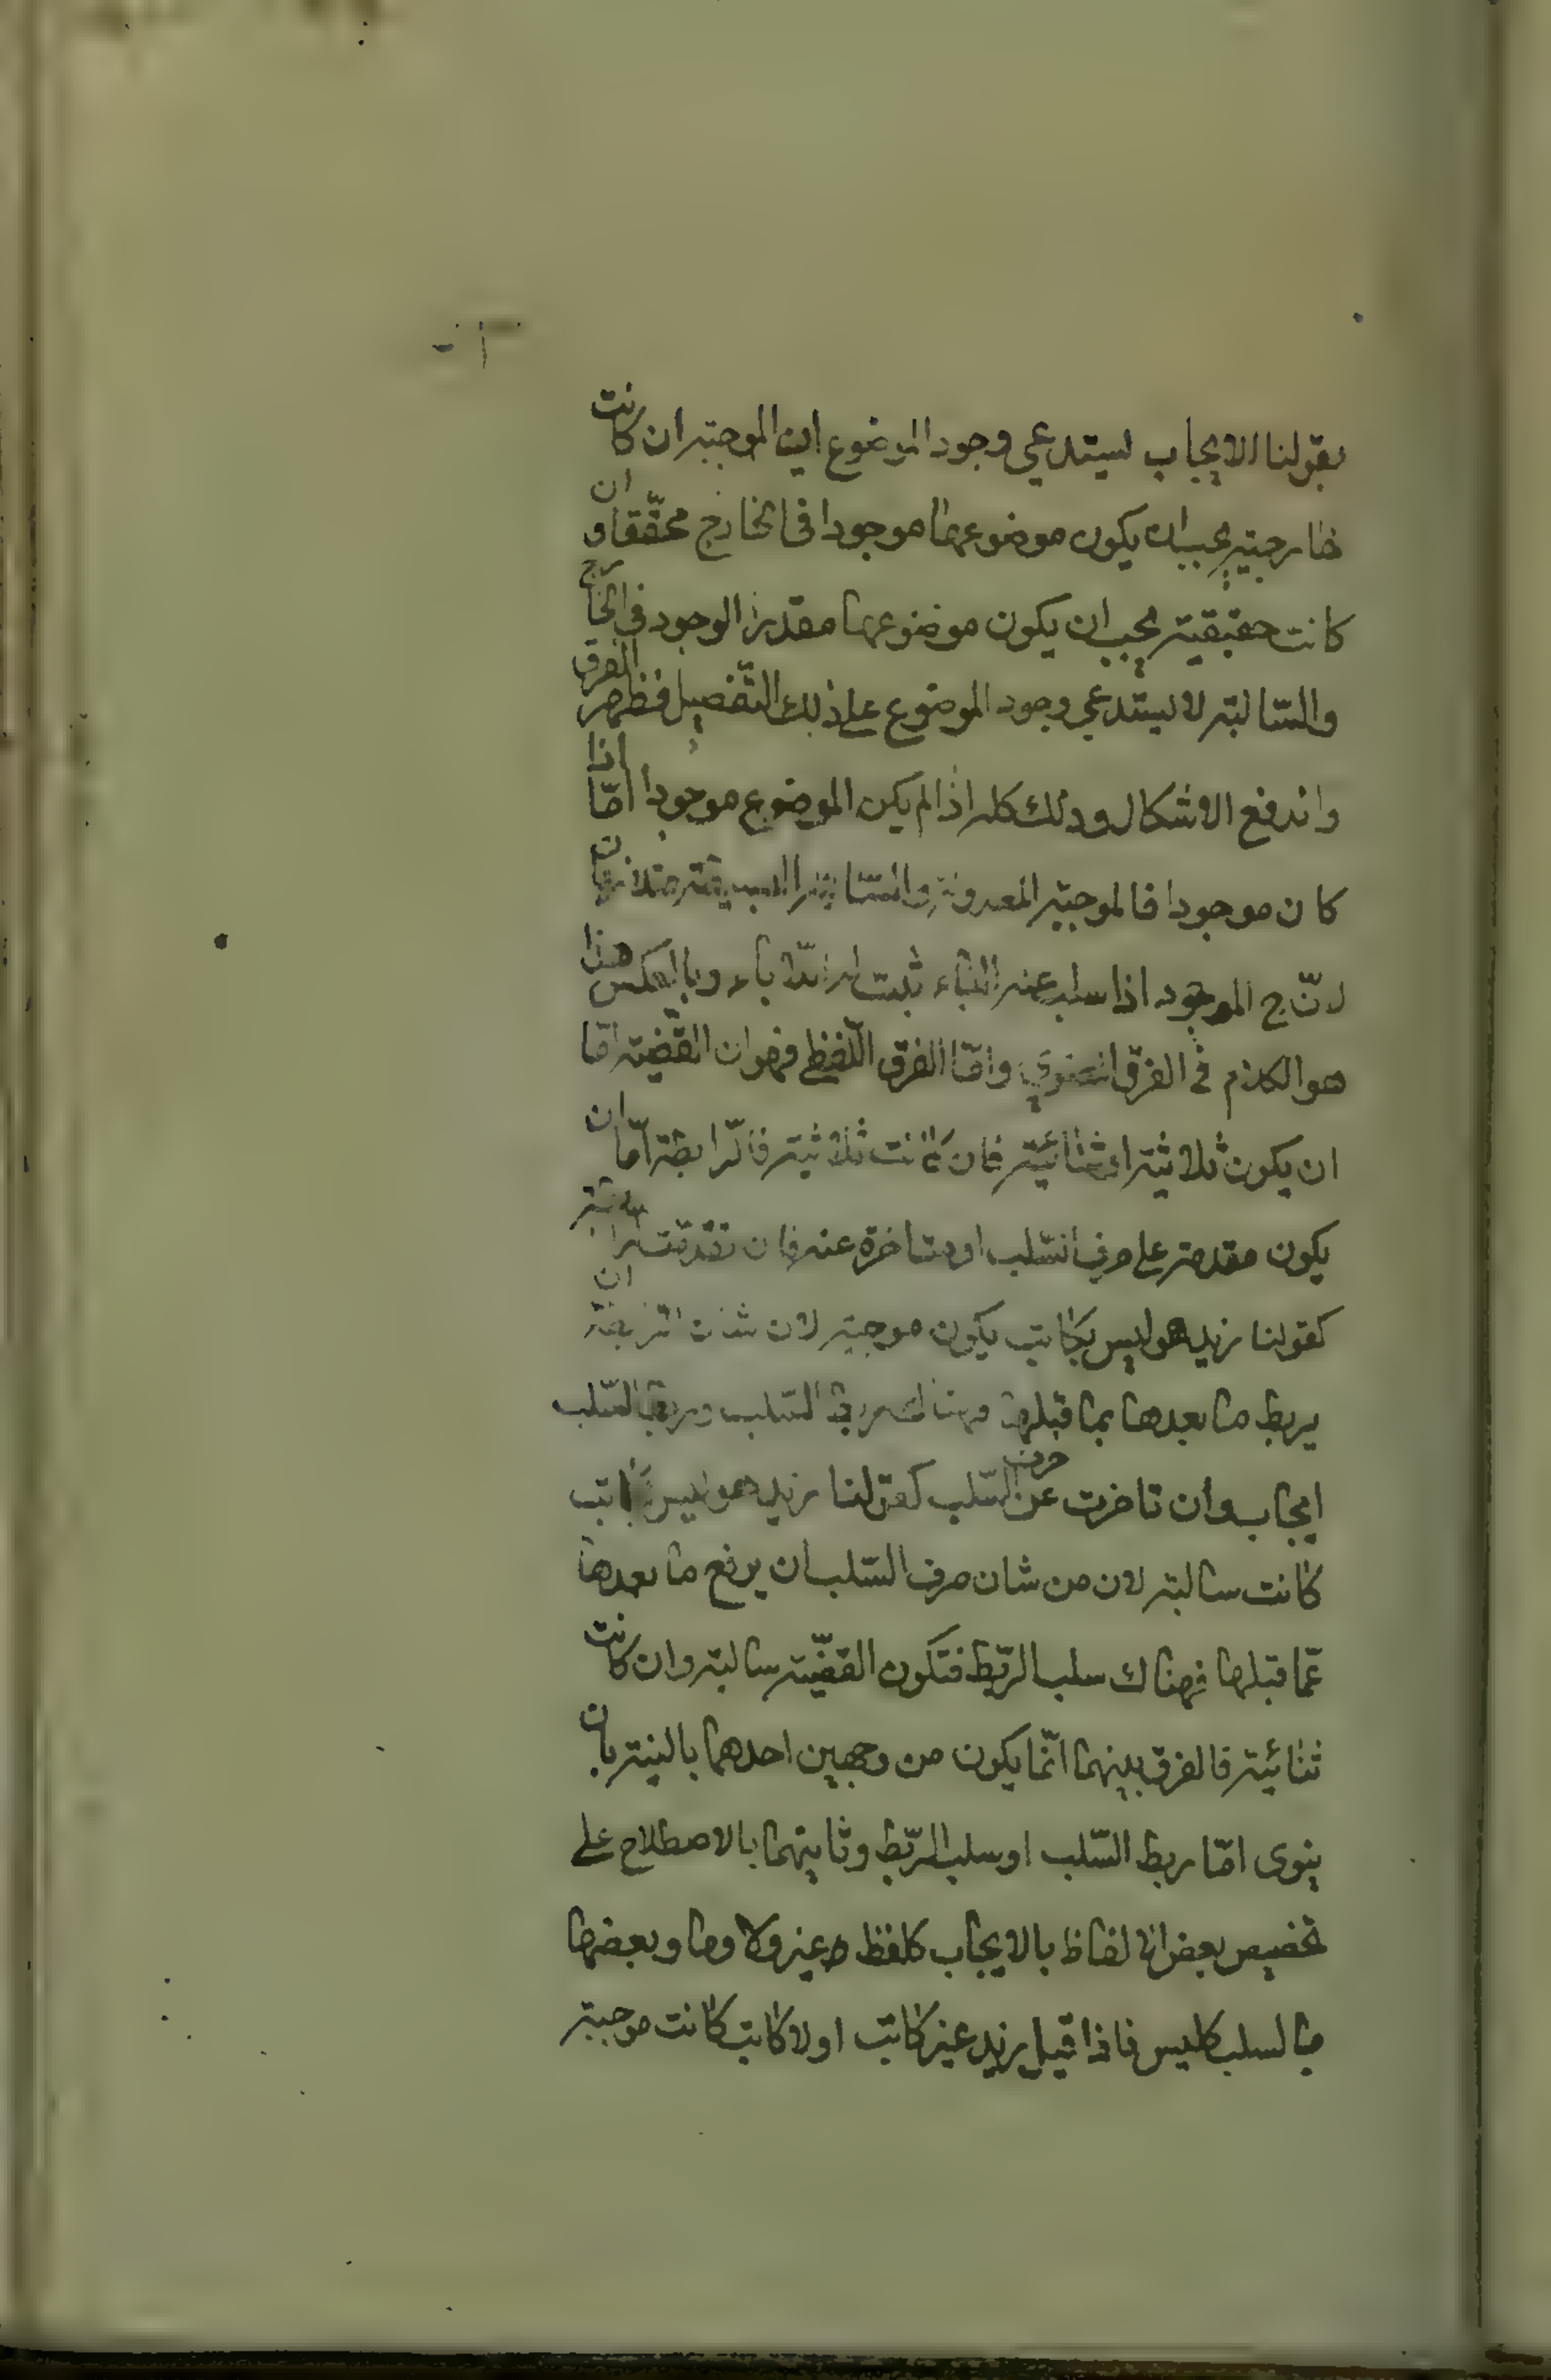 بقولنا الايجاب يستدعي وجود الموضوع ان الموجبة ان كانت
خارجية يجب ان يكون موضوعها موجودا في الخارج محققا وان
كانت حقيقية يجب ان يكون موضوعها مقدر الوجود في الخارج
والسّالبة لا يستدعي وجود الموضوع على ذلك التّفصيل فظهر الفرق
واندفع الاشكال وذلك كله اذا لم يكن الموضوع موجودا امّا اذا
كان موجودا فالموجبة المعدولة والسّالبة البسيطة متلازمان
لانّ ج الموجود اذا سلب عنه الباء ثبت له اللّاباء وبالعكس هذا
هو الكلام في الفرق المعنوي وامّا الفرق اللّفظي فهو ان القضيّة امّا
ان يكون ثلاثية او ثنائية فان كانت ثلاثية فالرّابطة امّا ان
يكون مقدمة على حرف السّلب او متاخرة عنه فان تقدمت
كقولنا زيد هو ليس بكاتب يكون موجبة لان شان الرابطة ان
يربط ما بعدها بما قبلها فهناك ربط السّلب وربط السّلب
ايجاب وان تاخرت عن حرف السّلب كقولنا زيد هو ليس بكاتب
كانت سالبة لان من شان حرف السّلب ان يرفع ما بعدها
عمّا قبلها فهناك سلب الرّبط فتكون القضيّة سالبة وان كانت
ثنائية فالفرق بينهما انّما يكون من وجهين احدهما بالنية بان
ينوى امّا ربط السّلب او سلب الرّبط وثانيهما بالاصطلاح على
تخصيص بعض الالفاظ بالايجاب كلفظ غير ولا وما وبعضها
بالسلب كليس فاذا قيل زيد غير كاتب او لا كاتب كانت موجبة